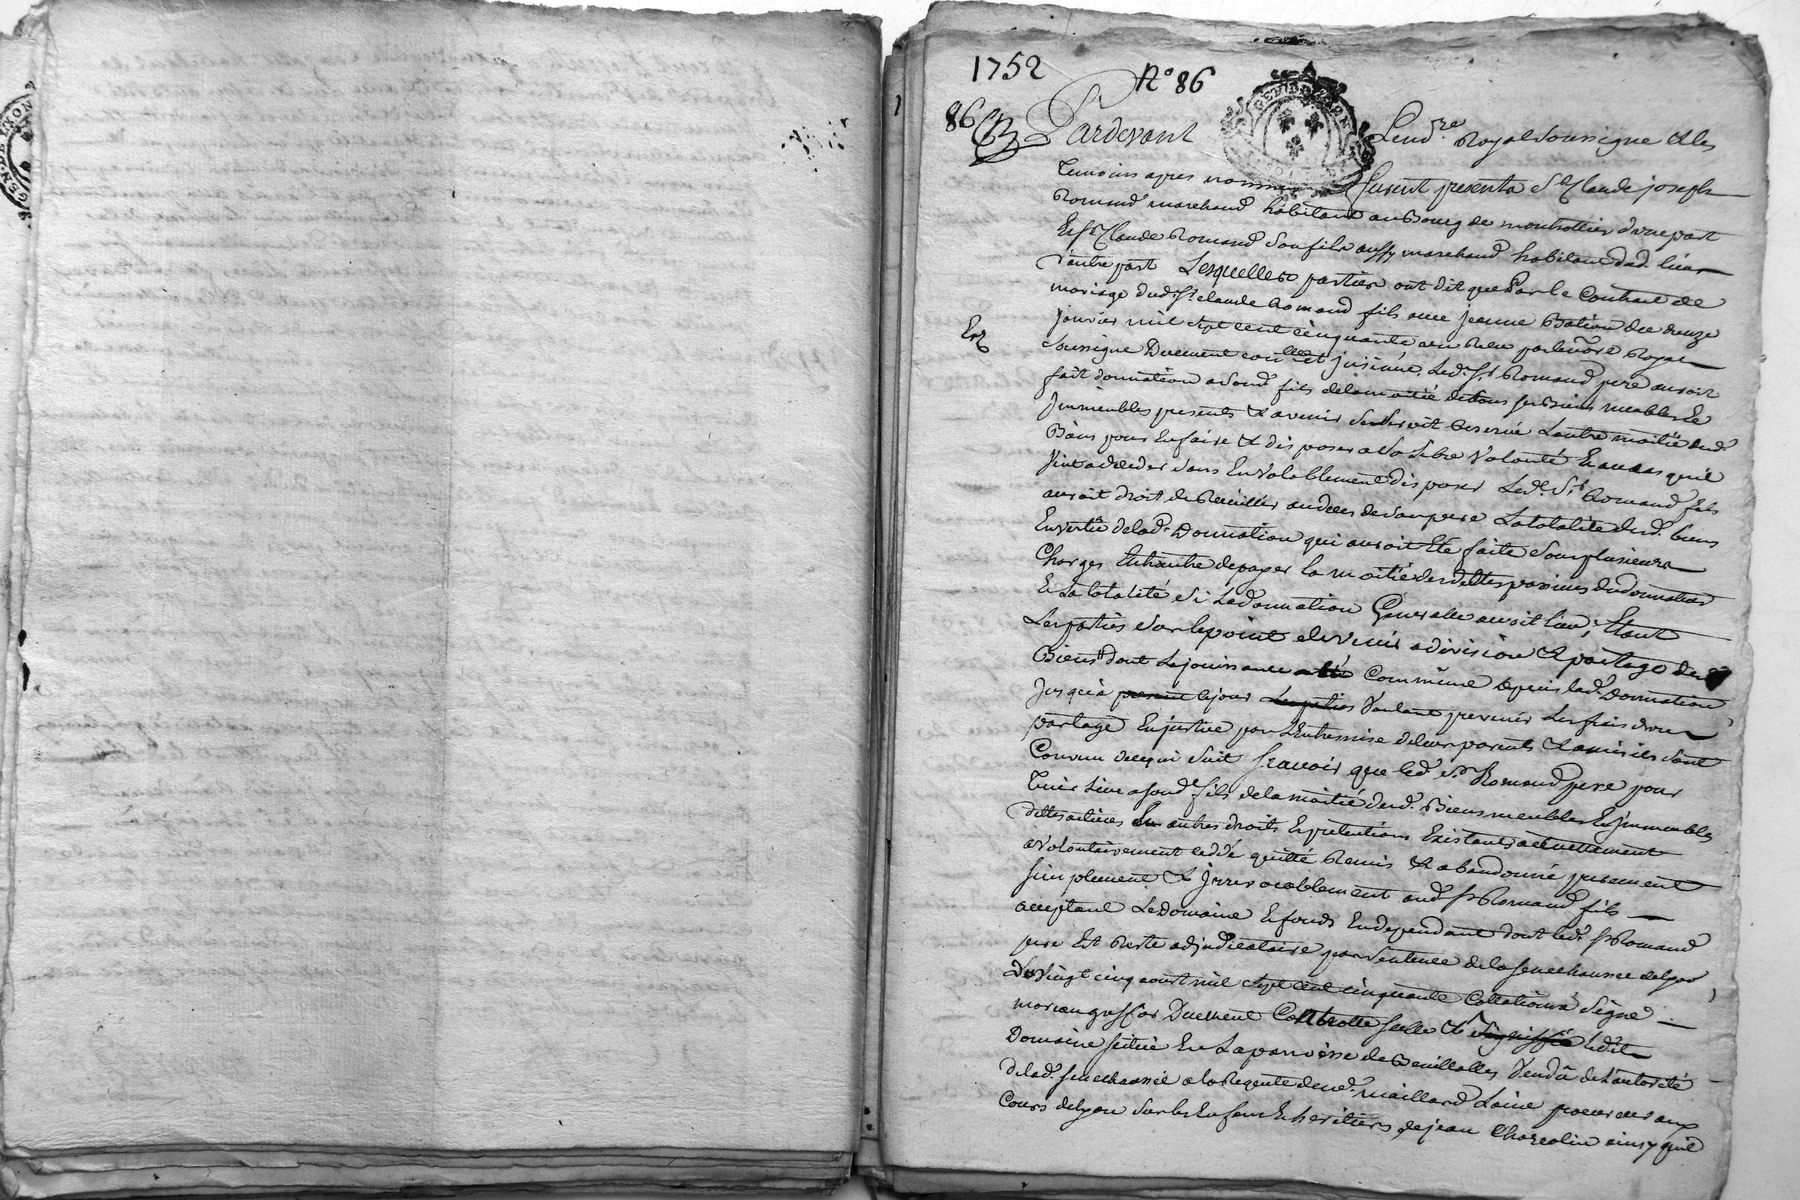 1752
N° 86
GEN DE LYON
86 Pardevant Le nore Royal soussigné et les
temoins apres nommés furent presents Sr Claude joseph
Romand marchand habitant au Bourg de montrottier d'une part
Et Sr Claude Romand son fils aussy marchand habitant dud. lieu
d'autre part Lesquelles parties ont dit que Par le Contrat de
mariage dud. Sr claude Romand fils avec jeanne du douze
janvier mil sept cent cinquante un Recu par le nore Royal
soussigné Duement conllé et jnsinué, Led. Sr Romand pere auroit
fait donnation a sond. fils de la moitié de tous ses Biens meubles Et
jmmeubles presents & avenir se seroit Reservé Lautre moitié desd.
Biens pour En faire & disposer a sa Libre Volonté Et au cas quil
Vint a deceder sans En Valablement disposer Led. Sr Romand fils
auroit droit de Recueillir au deces de son pere La totalité desd. biens
En vertu de lad. Donnation qui auroit Eté faite sous plusieurs
Charges Entrautre de payer la moitié des dettes passives du donnateur
Et la totalité si La donnation Generalle avoit lieu, Etant
Les parties sur le point de venir a division & partage des
Biens dont La jouissance a été Commune depuis lad. Donnation
jusqu'à ce jour Voulant prevenir Les frais d'un
partage En justice par L'entremise de leurs parents & amis ils sont
Convenu de ce qui suit scavoir que led. Sr Romand pere pour
tenir Lieu a sond. fils de la moitié desd. Biens meubles Et jmmeubles
dettes actives autres droits Et pretentions Existants actuellement
a Volontairement ceddé quitté Remis & abandonné purement
simplement & jrrevocablement aud. Sr Romand fils
acceptant Le Domaine Et fonds En dependant dont led. Sr Romand
pere Est Resté adjudicataire par sentence de la senechaussee de Lyon
Du Vingt cinq aout mil sept cent cinquante Collationné Signé
Duement Controllé scellé & signiffié ledit
Domaine scitué En La parroisse de Vendu de L'autorité
de lad. senechaussée a la Requete de me. maillard Laine procureur aux
Cours de Lyon sur les Enfans Et heritiers de jean ainsy qu'il